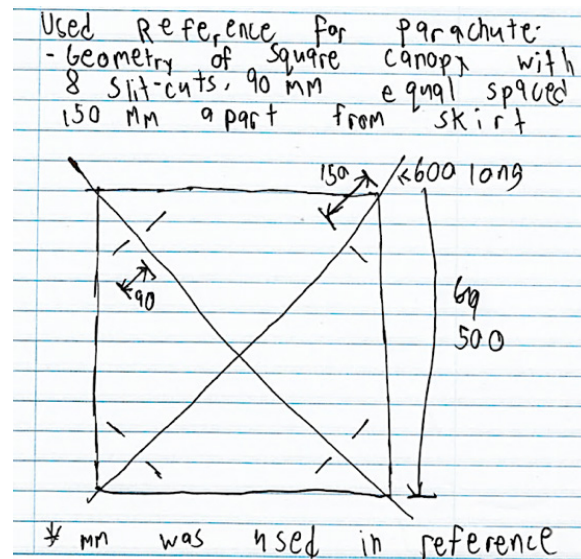 Used Reference for parachute:
- Geometry of square canopy with
8 slit-cuts, 90 mm equal spaced
150 mm apart from skirt
150
600 long
90
500
* mm was used in reference